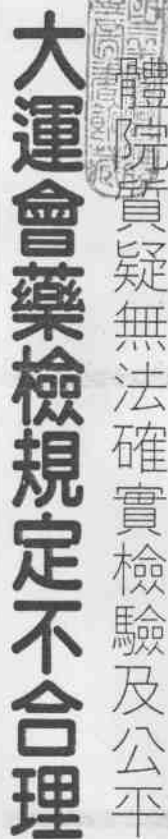 體院質疑無法確實檢驗及公平
大運會藥檢規定不合理